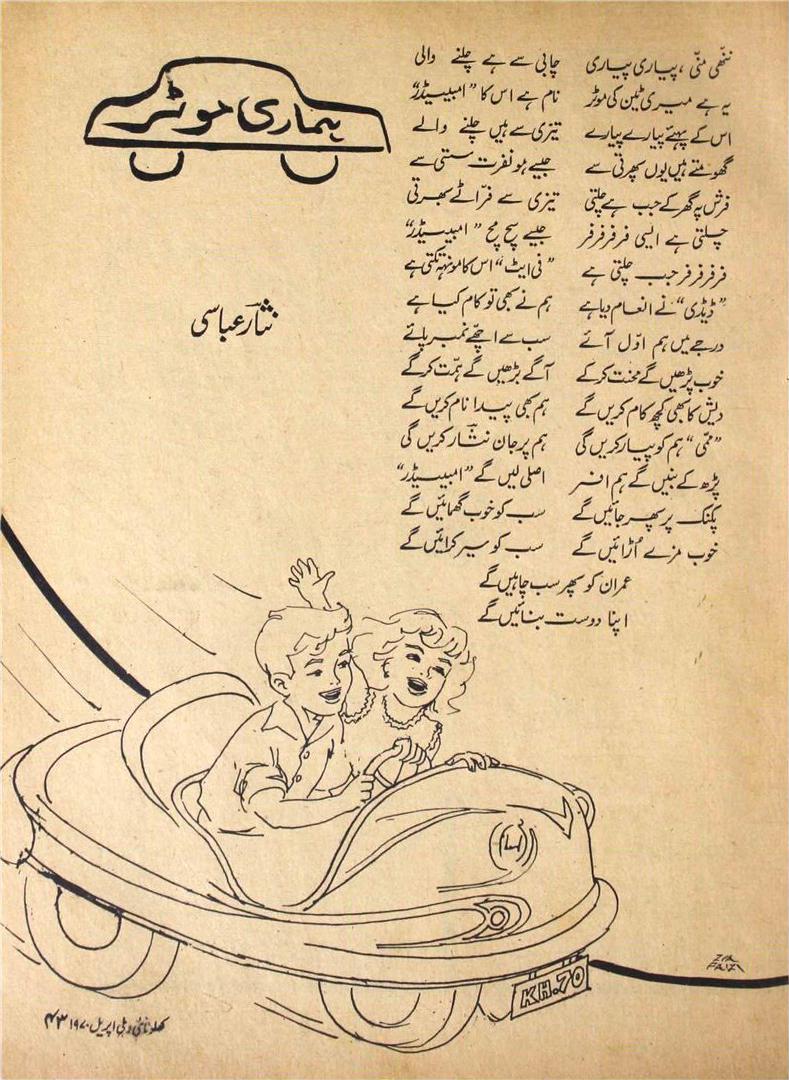 ہماری موٹر
نثار عباسی
ننّھی منّی ، پیاری پیاری چابی سے ہے چلنے والی
یہ ہے میری ٹین کی موٹر نام ہے اس کا "امبیسیڈر"
اس کے پہئے پیارے پیارے تیزی سے ہیں چلنے والے
گھومتے ہیں یوں پھرتی سے جیسے ہو نفرت سستی سے
فرش پہ گھر کے جب ہے چلتی تیزی سے فرّاٹے بھرتی
چلتی ہے ایسی فرفرفرفر جیسے سچ مچ "امبیسیڈر"
فرفرفرفر جب چلتی ہے "فی ایٹ" اس کا مونہہ تکتی ہے
"ڈیڈی" نے انعام دیا ہے ہم نے بھی تو کام کیا ہے
درجے میں ہم اوّل آئے سب سے اچھّے نمبر پائے
خوب پڑھیں گے محنت کر کے آگے بڑھیں گے ہمّت کر کے
دیش کا بھی کچھ کام کریں گے ہم بھی پیدا نام کریں گے
"ممّی" ہم کو پیار کریں گی ہم پر جان نثار کریں گی
پڑھ کے بنیں گے ہم افسر اصلی لیں گے "امبیسیڈر"
پکنک پر پھر جائیں گے سب کو خوب گھمائیں گے
خوب مزے اُڑائیں گے سب کو سیر کرائیں گے
عمران کو پھر سب چاہیں گے
اپنا دوست بنائیں گے
KH.70
ZIA
FAIZI
کھلونا نئی دہلی اپریل ۱۹۷۰ ۴۳